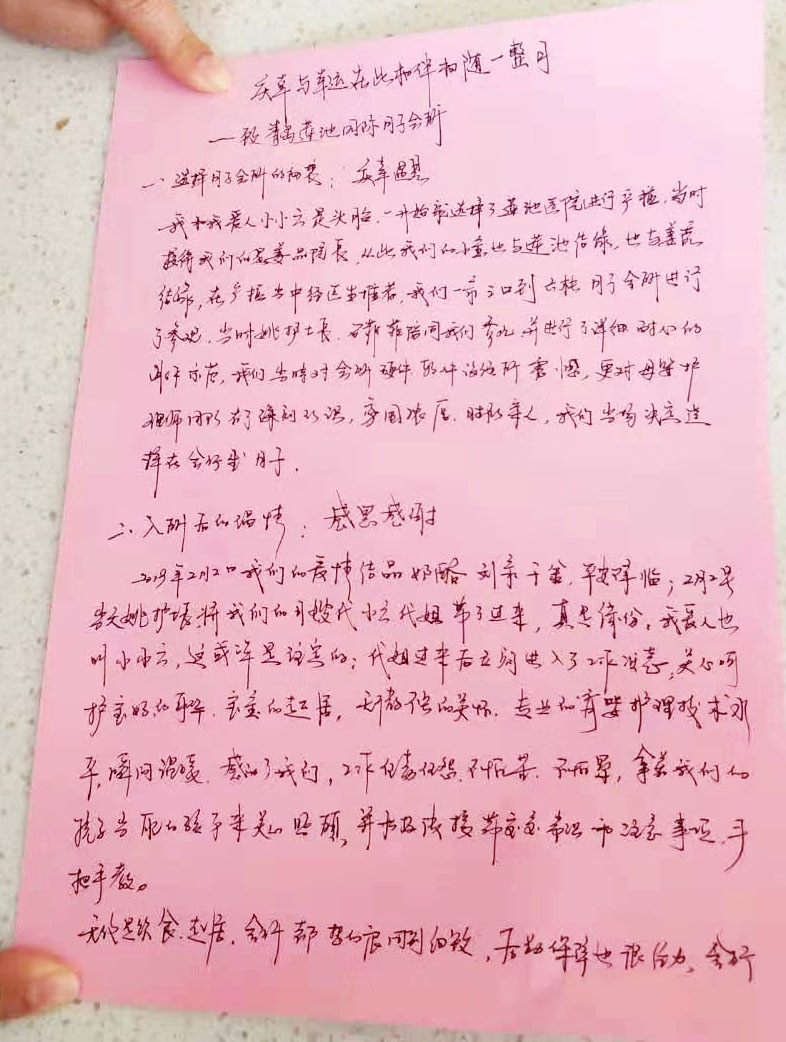 庆幸与幸运在此相伴相随一整月
——致青岛莲池国际月子会所
一、选择月子会所的初衷：庆幸遇见
我和我爱人小小六是头胎，一开始就选择了莲池医院进行产检，当时
接待我们的是姜品院长，从此我们的小宝也与莲池结缘，也与姜院
结缘，在产检当中经医生推荐，我们一家三口到 月子会所进行
了参观，当时姚护士长、 陪同我们参观，并进行了详细耐心的
讲解示范，我们当时对会所硬件、软件设施所震憾，更对母婴护
理师团队有了深刻认识，氛围浓厚、 亲人，我们当场决定选
择在会所坐月子。
二、入所后的温情：感恩感谢
2019年2月2日我们的爱情结晶奶酪 刘家千金，平安降临；2月2号
当天姚护士长将我们的月嫂代小六代姐带了过来，真是缘份。我爱人也
叫小小六，这或许是注定的；代姐过来后立刻进入了工作状态，关心呵
护宝妈的 、宝宝的起居，无微不至的关怀、专业的育婴护理技术水
平，瞬间温暖、感动了我们，工作任劳任怨、不怕 、不怕累，拿着我们的
孩子当自己的孩子来关心照顾，并 传授带宝宝常识和注意事项，手
把手教。
无论是饮食、起居，会所都 周到细致，后勤保障也很给力，会所